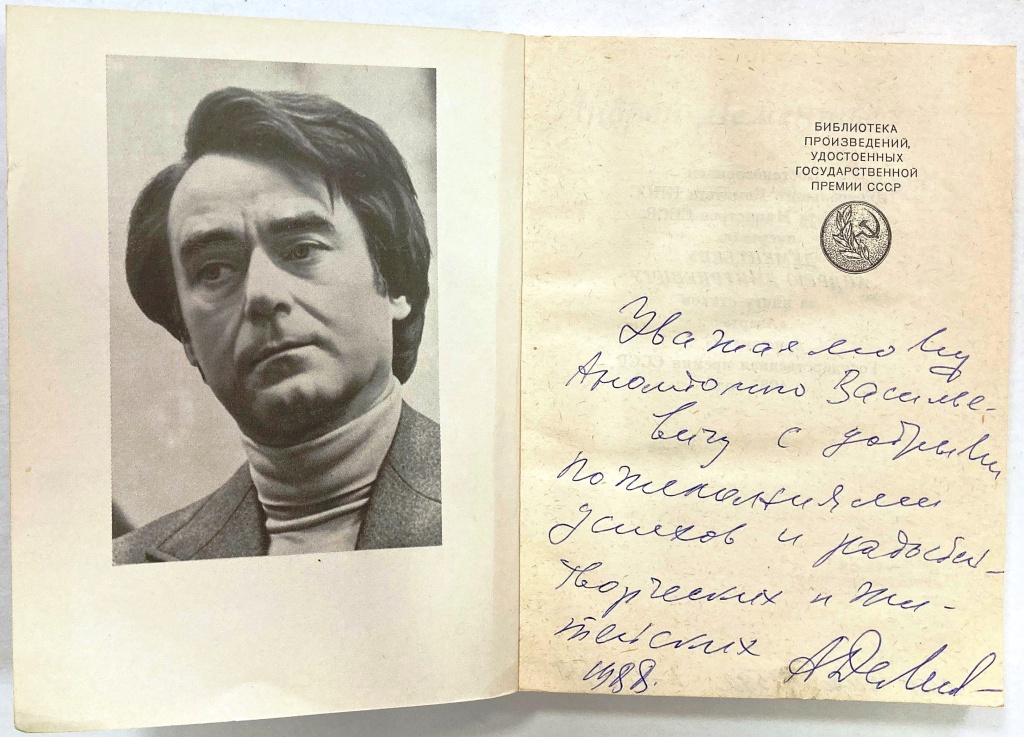 БИБЛИОТЕКА
ПРОИЗВЕДЕНИЙ,
УДОСТОЕННЫХ
ГОСУДАРСТВЕННОЙ
ПРЕМИИ СССР
Уважаемому
Анатолию Василье-
вичу с добрыми
пожеланиями
успехов и радостей –
творческих и жи-
тейских
1988.